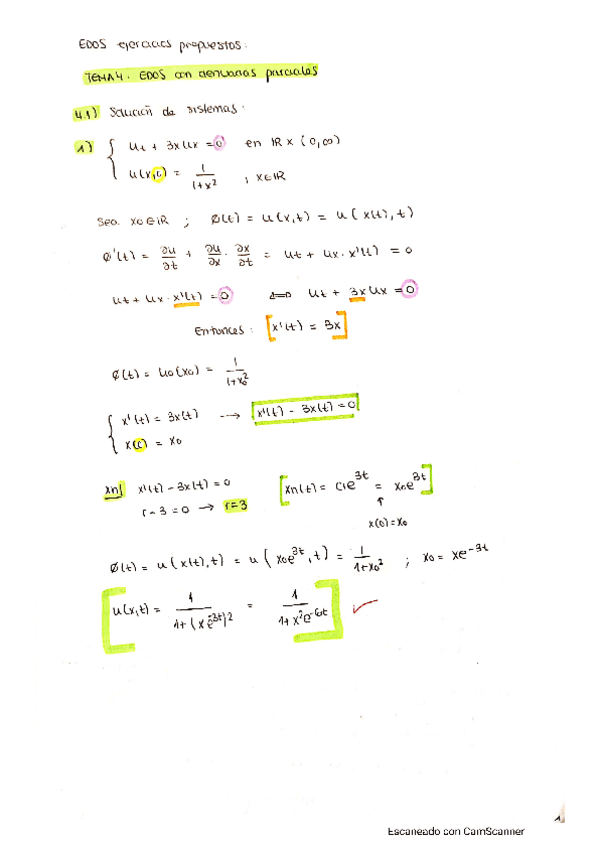 EDOS ejercicios propuestos:
TEMA 4. EDOS con derivadas parciales
4.1) Solución de sistemas:
1) { ut + 3x ux = 0 en IR x (0,∞)
u(x,0) = 1/(1+x²) ; x∈IR
Sea x0 ∈ IR ; Ø(t) = u(x,t) = u(x(t),t)
Ø'(t) = ∂u/∂t + ∂u/∂x · ∂x/∂t = ut + ux · x'(t) = 0
ut + ux · x'(t) = 0 ⇔ ut + 3x ux = 0
Entonces: [x'(t) = 3x]
Ø(t) = u0(x0) = 1/(1+x0²)
{ x'(t) = 3x(t) → x'(t) - 3x(t) = 0
x(0) = x0
xn| x'(t) - 3x(t) = 0 [xn(t) = C1e^3t = x0e^3t]
r - 3 = 0 → r=3 ↑
x(0) = x0
Ø(t) = u(x(t),t) = u(x0e^3t, t) = 1/(1+x0²) ; x0 = xe^-3t
[u(x,t) = 1/(1+(xe^-3t)²) = 1/(1+x²e^-6t)] ✓
1
Escaneado con CamScanner